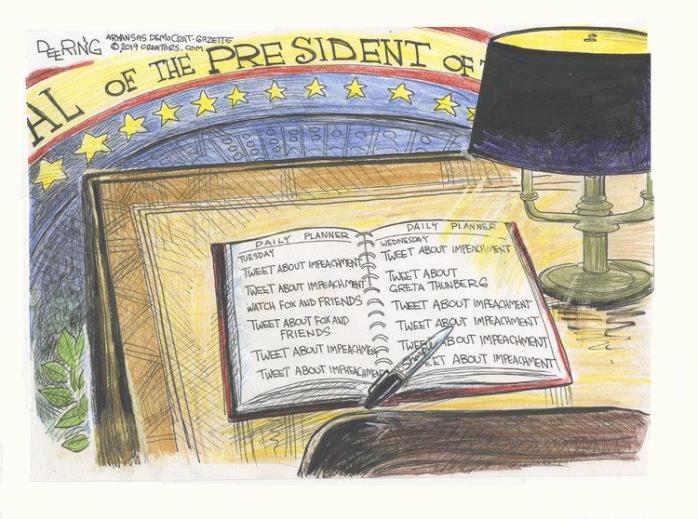 DEERING
ARKANSAS DEMOCRAT-GAZETTE
©2019 CREATORS.COM
AL OF THE PRESIDENT OF
DAILY PLANNER
TUESDAY
TWEET ABOUT IMPEACHMENT
TWEET ABOUT IMPEACHMENT
WATCH FOX AND FRIENDS
TWEET ABOUT FOX AND
FRIENDS
TWEET ABOUT IMPEACHMENT
TWEET ABOUT IMPHEACHMENT
DAILY PLANNER
WEDNESDAY
TWEET ABOUT IMPEACHMENT
TWEET ABOUT
GRETA THUNBERG
TWEET ABOUT IMPEACHMENT
TWEET ABOUT IMPEACHMENT
TWEET ABOUT IMPEACHMENT
TWEET ABOUT IMPEACHMENT
Sharpie